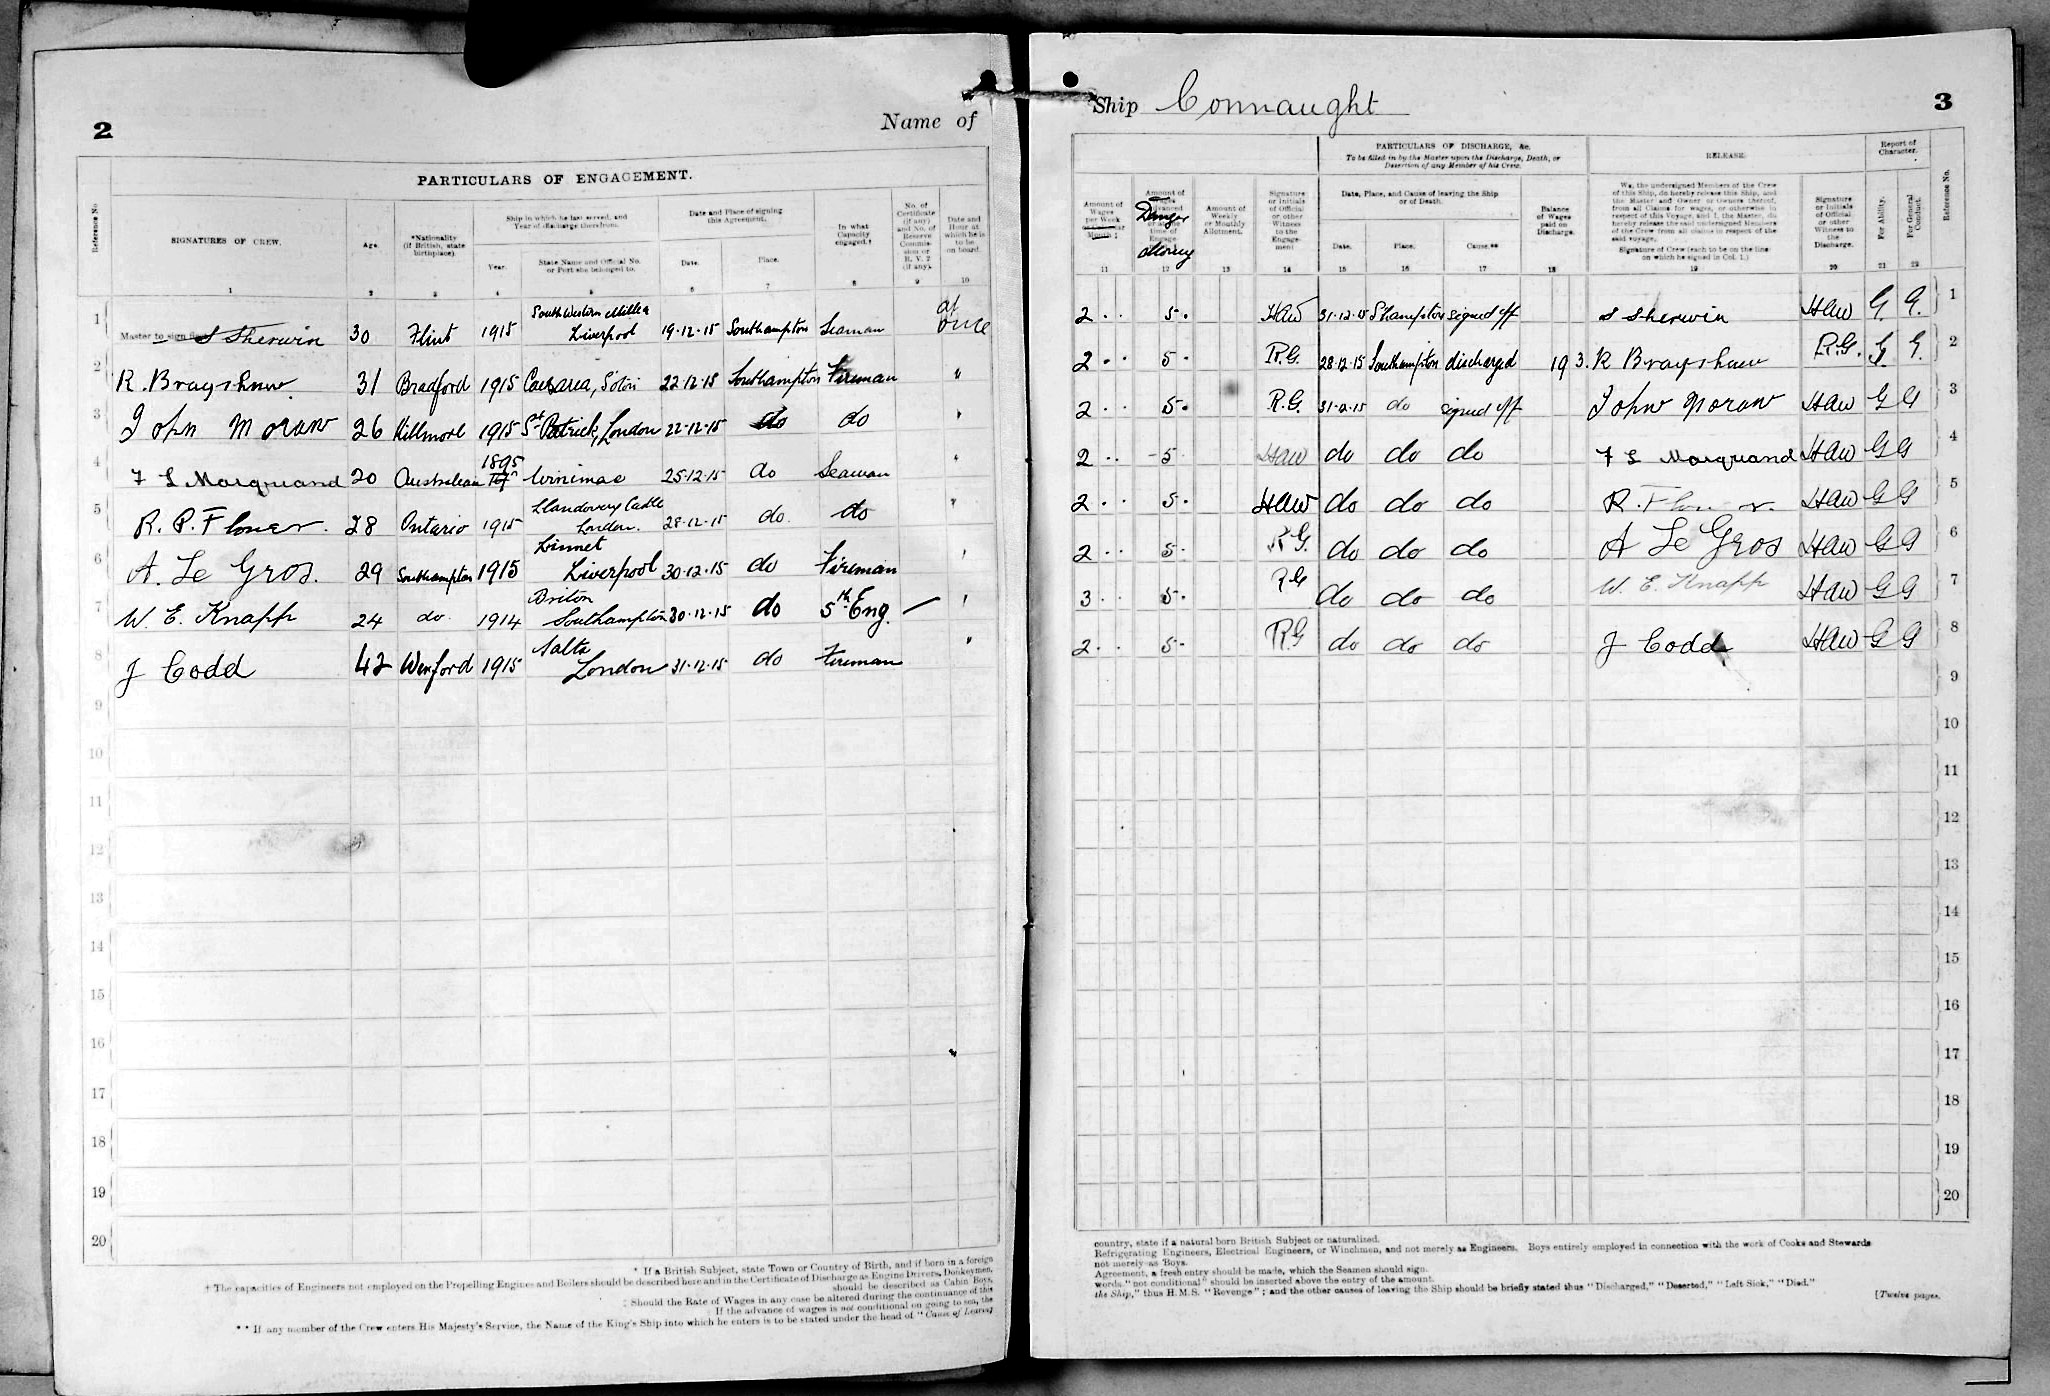 2
Name of
PARTICULARS OF ENGAGEMENT.
Reference No
SIGNATURES OF CREW.
Age.
*Nationality (if British, state birthplace).
Ship in which he last served, and Year of discharge therefrom.
Year.
State Name and Official No. or Port she belonged to.
Date and Place of signing this Agreement.
Date.
Place.
In what Capacity engaged.†
No. of Certificate (if any) and No. of Reserve Commission or R.V.2 (if any).
Date and Hour at which he is to be on board.
1 2 3 4 5 6 7 8 9 10
1 Master to sign first S Sherwin 30 Flint 1915 South Western Liverpool 19·12·15 Southampton Seaman at once
2 R. Brayshaw. 31 Bradford 1915 Caesarea, S'ton 22·12·15 Southampton Fireman "
3 John Moran 26 Killmore 1915 St Patrick, London 22·12·15 do do "
4 F L Marquand 20 Australian 1895 Winimac 25·12·15 do Seaman "
5 R. P. Flower. 28 Ontario 1915 Llandovery Castle London. 28·12·15 do. do "
6 A. Le Gros. 29 Southampton 1915 Linnet Liverpool 30·12·15 do Fireman "
7 W. E. Knapp 24 do. 1914 Briton Southampton 30·12·15 do 5th Eng. — "
8 J Codd 42 Wexford 1915 Salta London 31·12·15 do Fireman "
9
10
11
12
13
14
15
16
17
18
19
20
* If a British Subject, state Town or Country of Birth, and if born in a foreign
† The capacities of Engineers not employed on the Propelling Engines and Boilers should be described here and in the Certificate of Discharge as Engine Drivers, Donkeymen,
should be described as Cabin Boys,
‡ Should the Rate of Wages in any case be altered during the continuance of this
If the advance of wages is not conditional on going to sea, the
** If any member of the Crew enters His Majesty's Service, the Name of the King's Ship into which he enters is to be stated under the head of "Cause of Leaving
Ship Connaught
3
PARTICULARS OF DISCHARGE, &c.
To be filled in by the Master upon the Discharge, Death, or Desertion of any Member of his Crew.
RELEASE.
Report of Character.
Reference No.
Amount of Wages per Week or Calendar Month ‡
Amount of Wages advanced at time of Engagement
Danger Money
Amount of Weekly or Monthly Allotment.
Signature or Initials of Official or other Witness to the Engagement
Date, Place, and Cause of leaving the Ship or of Death.
Date.
Place.
Cause.**
Balance of Wages paid on Discharge.
We, the undersigned Members of the Crew of this Ship, do hereby release this Ship, and the Master and Owner or Owners thereof, from all Claims for wages, or otherwise in respect of this Voyage, and I, the Master, do hereby release the said undersigned Members of the Crew from all claims in respect of the said voyage.
Signature of Crew (each to be on the line on which he signed in Col. 1.)
Signature or Initials of Official or other Witness to the Discharge.
For Ability.
For General Conduct.
11 12 13 14 15 16 17 18 19 20 21 22
2 · · 5 · HAW 31·12·15 S'hampton signed off S Sherwin HAW G. G. 1
2 · · 5 · R.G. 28·12·15 Southampton discharged 19 3. R Brayshaw R.G. G G. 2
2 · · 5 · R.G. 31·12·15 do signed off John Moran HAW G G 3
2 · · 5 · HAW do do do F L Marquand HAW G G 4
2 · · 5 · HAW do do do R. Flower. HAW G G 5
2 · · 5 · R.G. do do do A Le Gros HAW G G 6
3 · · 5 · RG do do do W. E. Knapp HAW G G 7
2 · · 5 · RG do do do J Codd HAW G G 8
9
10
11
12
13
14
15
16
17
18
19
20
country, state if a natural born British Subject or naturalized.
Refrigerating Engineers, Electrical Engineers, or Winchmen, and not merely as Engineers. Boys entirely employed in connection with the work of Cooks and Stewards
not merely as Boys.
Agreement, a fresh entry should be made, which the Seamen should sign.
words "not conditional" should be inserted above the entry of the amount.
the Ship," thus H.M.S. "Revenge"; and the other causes of leaving the Ship should be briefly stated thus "Discharged," "Deserted," "Left Sick," "Died."
[Twelve pages.